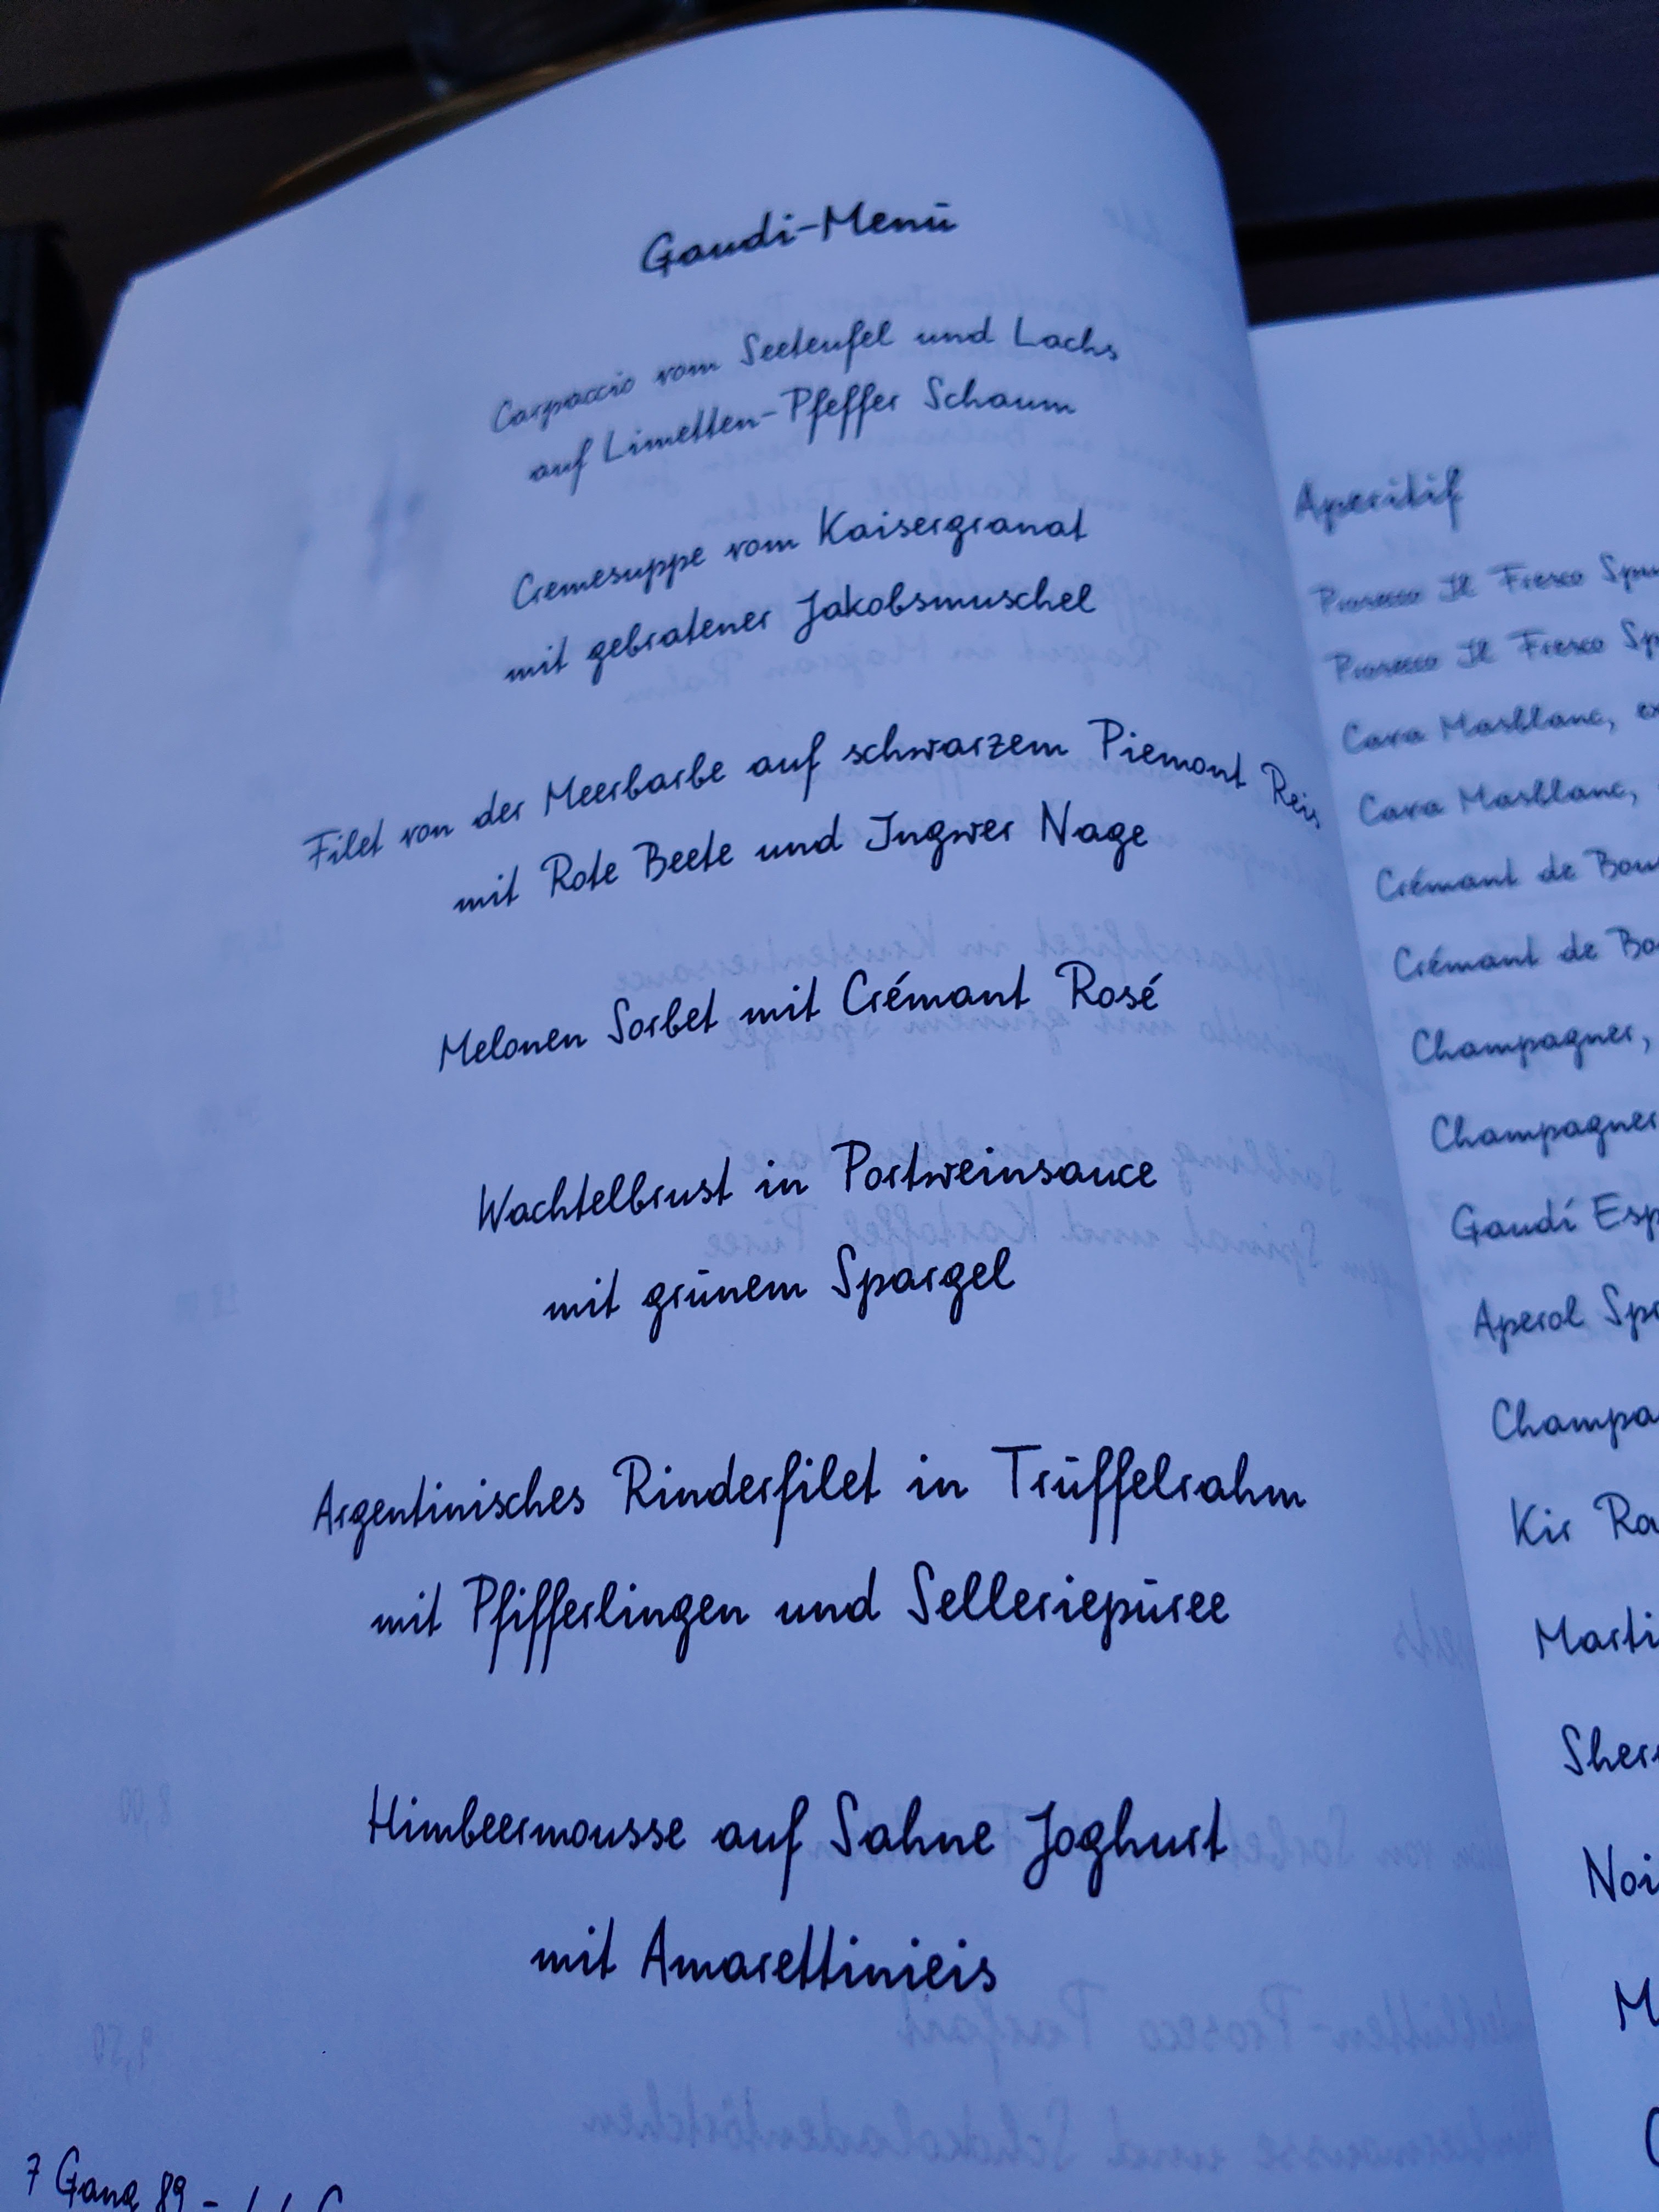 Gaudi-Menü
Carpaccio vom Seeteufel und Lachs
auf Limetten-Pfeffer Schaum
Cremesuppe vom Kaisergranat
mit gebratener Jakobsmuschel
Filet von der Meerbarbe auf schwarzem Piemont Reis
mit Rote Beete und Ingwer Nage
Melonen Sorbet mit Crémant Rosé
Wachtelbrust in Portweinsauce
mit grünem Spargel
Argentinisches Rinderfilet in Trüffelrahm
mit Pfifferlingen und Selleriepüree
Himbeermousse auf Sahne Joghurt
mit Amarettinieis
7 Gang 89,-
Aperitif
Prosecco Il Fresco
Prosecco Il Fresco
Cava Masblanc,
Cava Masblanc,
Crémant de
Crémant de
Champagner,
Champagner
Gaudí
Aperol
Kir